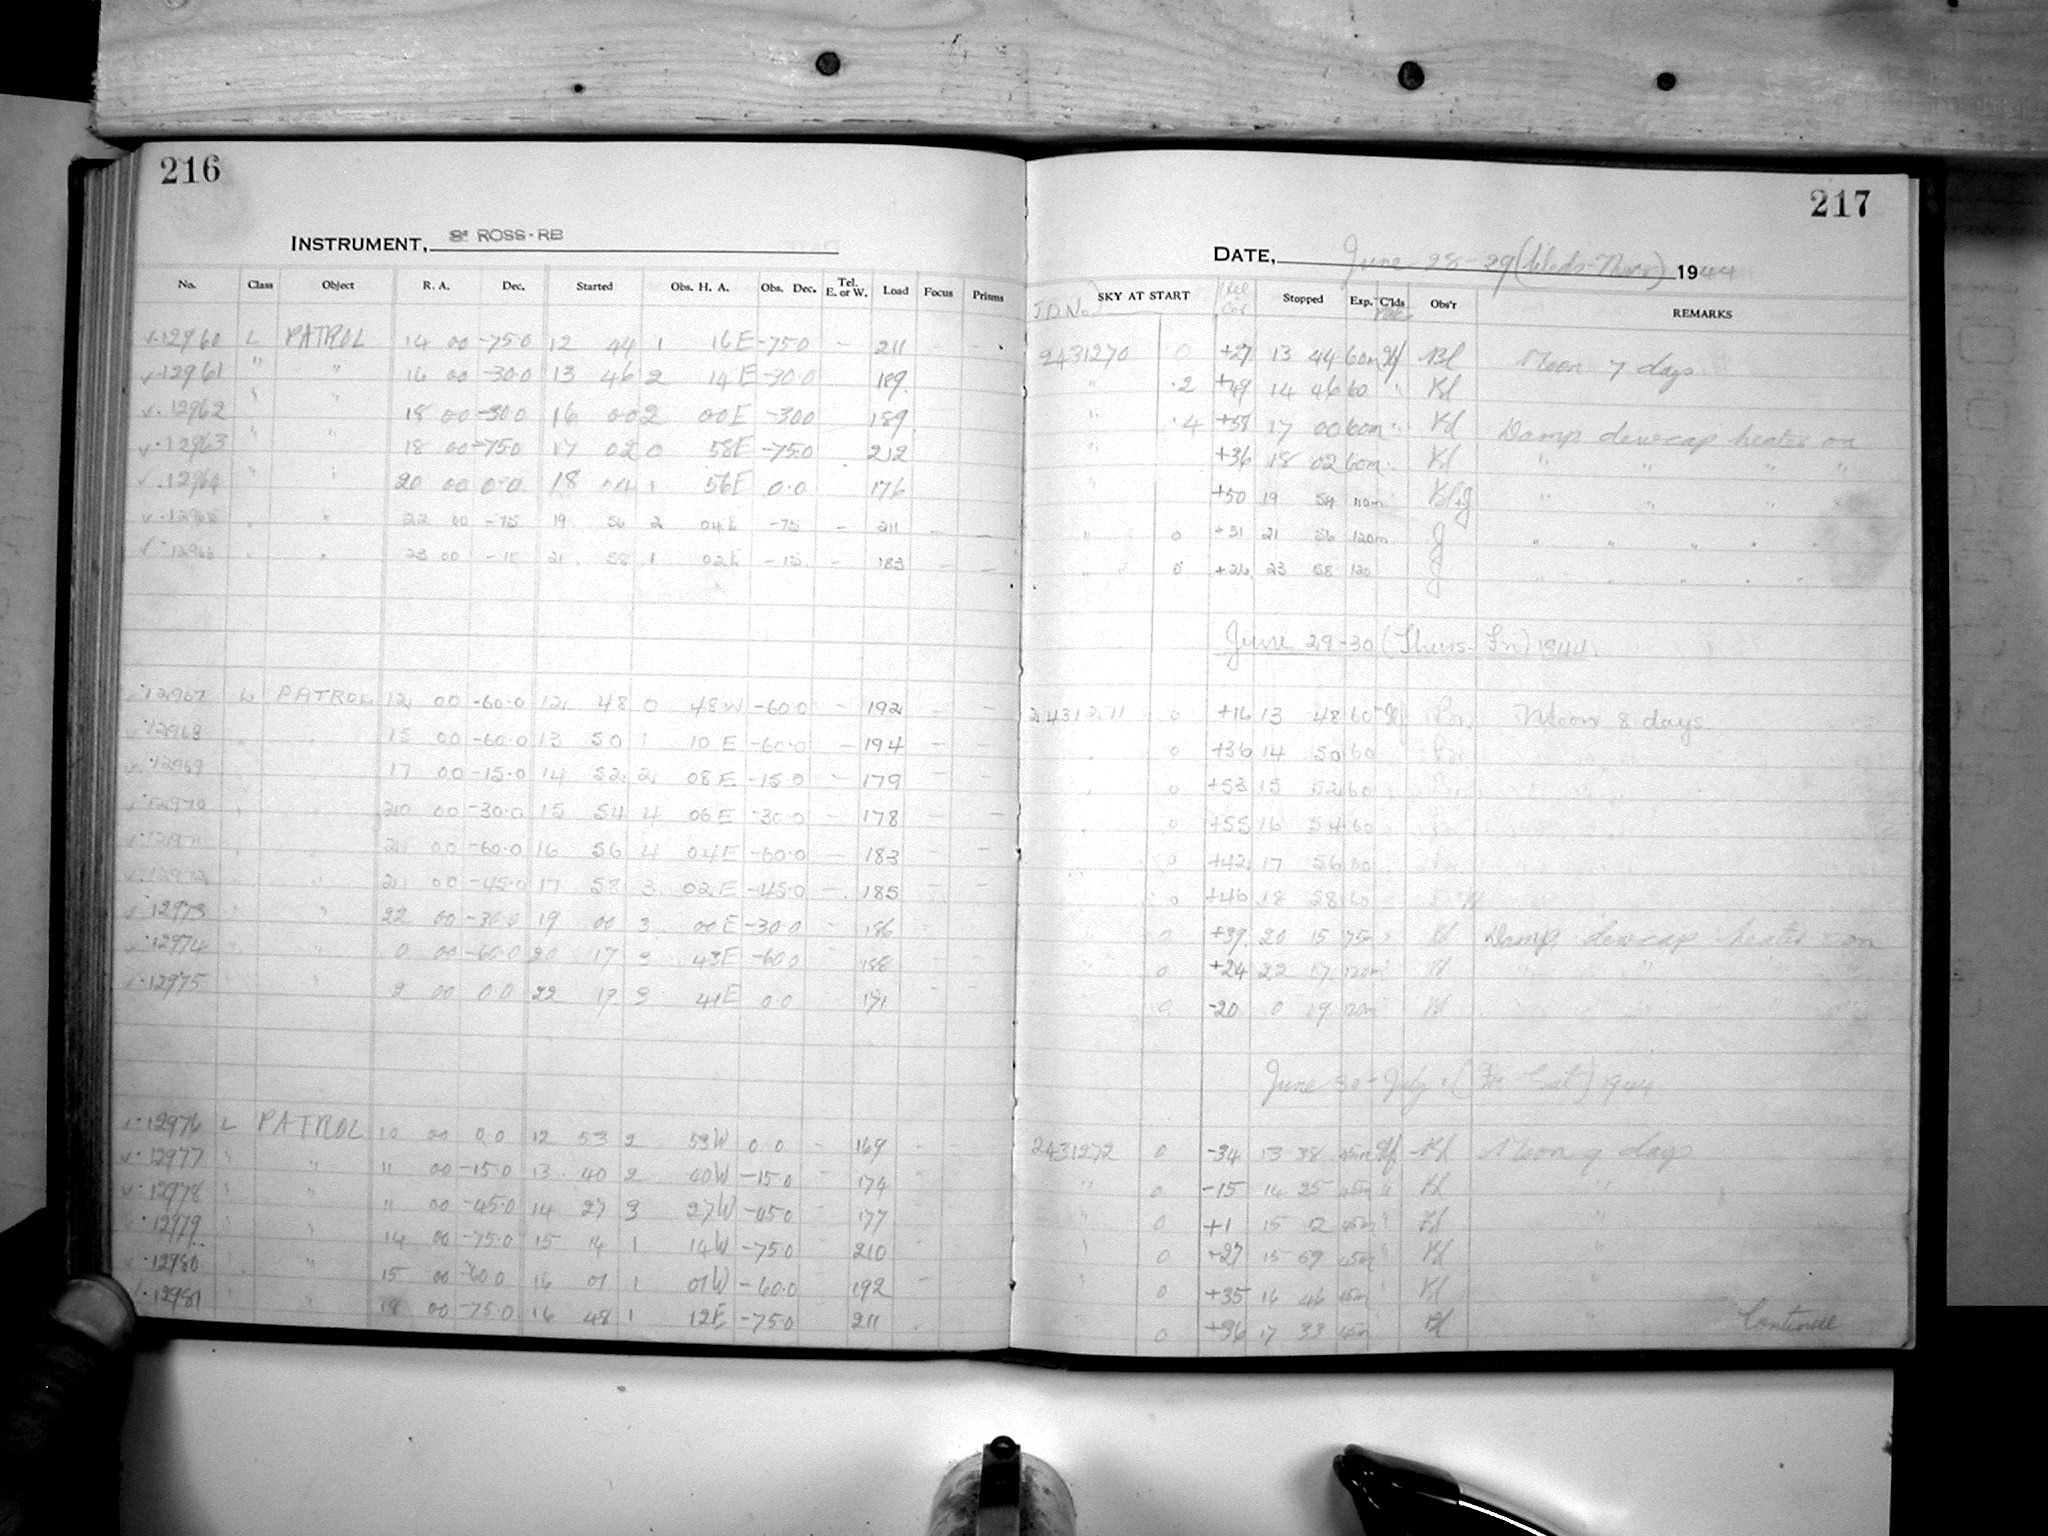 216
INSTRUMENT, 8" ROSS-RB
No. Class Object R. A. Dec. Started Obs. H. A. Obs. Dec. Tel. E. or W. Load Focus Prisms
12960 L PATROL 14 00 -75.0 12 44 1 16E -75.0 - 211
12961 " " 16 00 -30.0 13 46 2 14E -30.0 189
12962 " " 18 00 -30.0 16 00 2 00E -30.0 189
12963 " " 18 00 -75.0 17 02 0 58E -75.0 212
12964 " " 20 00 0.0 18 04 1 56E 0.0 176
12965 " " 22 00 -75 19 56 2 04E -75 - 211 - -
12966 " " 23 00 -15 21 58 1 02E -15 - 183 - -
12967 L PATROL 12 00 -60.0 12 48 0 48W -60.0 - 192 - -
12968 " " 15 00 -60.0 13 50 1 10E -60.0 - 194 - -
12969 " " 17 00 -15.0 14 52 2 08E -15.0 - 179 - -
12970 " " 20 00 -30.0 15 54 4 06E -30.0 - 178 - -
12971 " " 21 00 -60.0 16 56 4 04E -60.0 - 183 - -
12972 " " 21 00 -45.0 17 58 3 02E -45.0 - 185 - -
12973 " " 22 00 -30.0 19 00 3 00E -30.0 186
12974 " " 0 00 -60.0 20 17 3 43E -60.0
12975 2 00 0.0 22 19 3 41E 0.0 191
12976 L PATROL 10 00 0.0 12 53 2 53W 0.0 - 169
12977 " " 11 00 -15.0 13 40 2 40W -15.0 174
12978 " " 11 00 -45.0 14 27 3 27W -45.0 177
12979 " " 14 00 -75.0 15 14 1 14W -75.0 210
12980 " " 15 00 -60.0 16 01 1 01W -60.0 192
12981 " " 18 00 -75.0 16 48 1 12E -75.0 211
217
DATE, June 28-29 (Weds-Thurs) 1944
J D No. SKY AT START Stopped Exp. C'lds Obs'r REMARKS
2431270 0 +27 13 44 60m Bl Moon 7 days
" .2 +49 14 46 60 " Bl
" .4 +58 17 00 60m " Bl Damp dewcap heater on
" +36 18 02 60m " Bl " " " "
" +50 19 54 110m " " " "
" 0 +31 21 56 120m J " " " " "
" 0 +26 23 58 120 J " " " " "
June 29-30 (Thurs-Fri) 1944
2431271 0 +16 13 48 60 Moon 8 days
0 +36 14 50 60
0 +53 15 52 60
0 +55 16 54 60
0 +42 17 56 60
0 +40 18 58 60
0 +39 20 15 75m Bl Damp dewcap heater on
0 +24 22 17 120m Bl
0 -20 0 19 120m Bl
June 30-July 1 (Fri-Sat) 1944
2431272 0 -34 13 38 45m Bl Moon 9 days
" 0 -15 14 25 45m " Bl "
" 0 +1 15 12 45m " Bl "
" 0 -27 15 59 45m " Bl "
" 0 +35 16 46 45m Bl "
0 +36 17 33 45m Bl " Continue